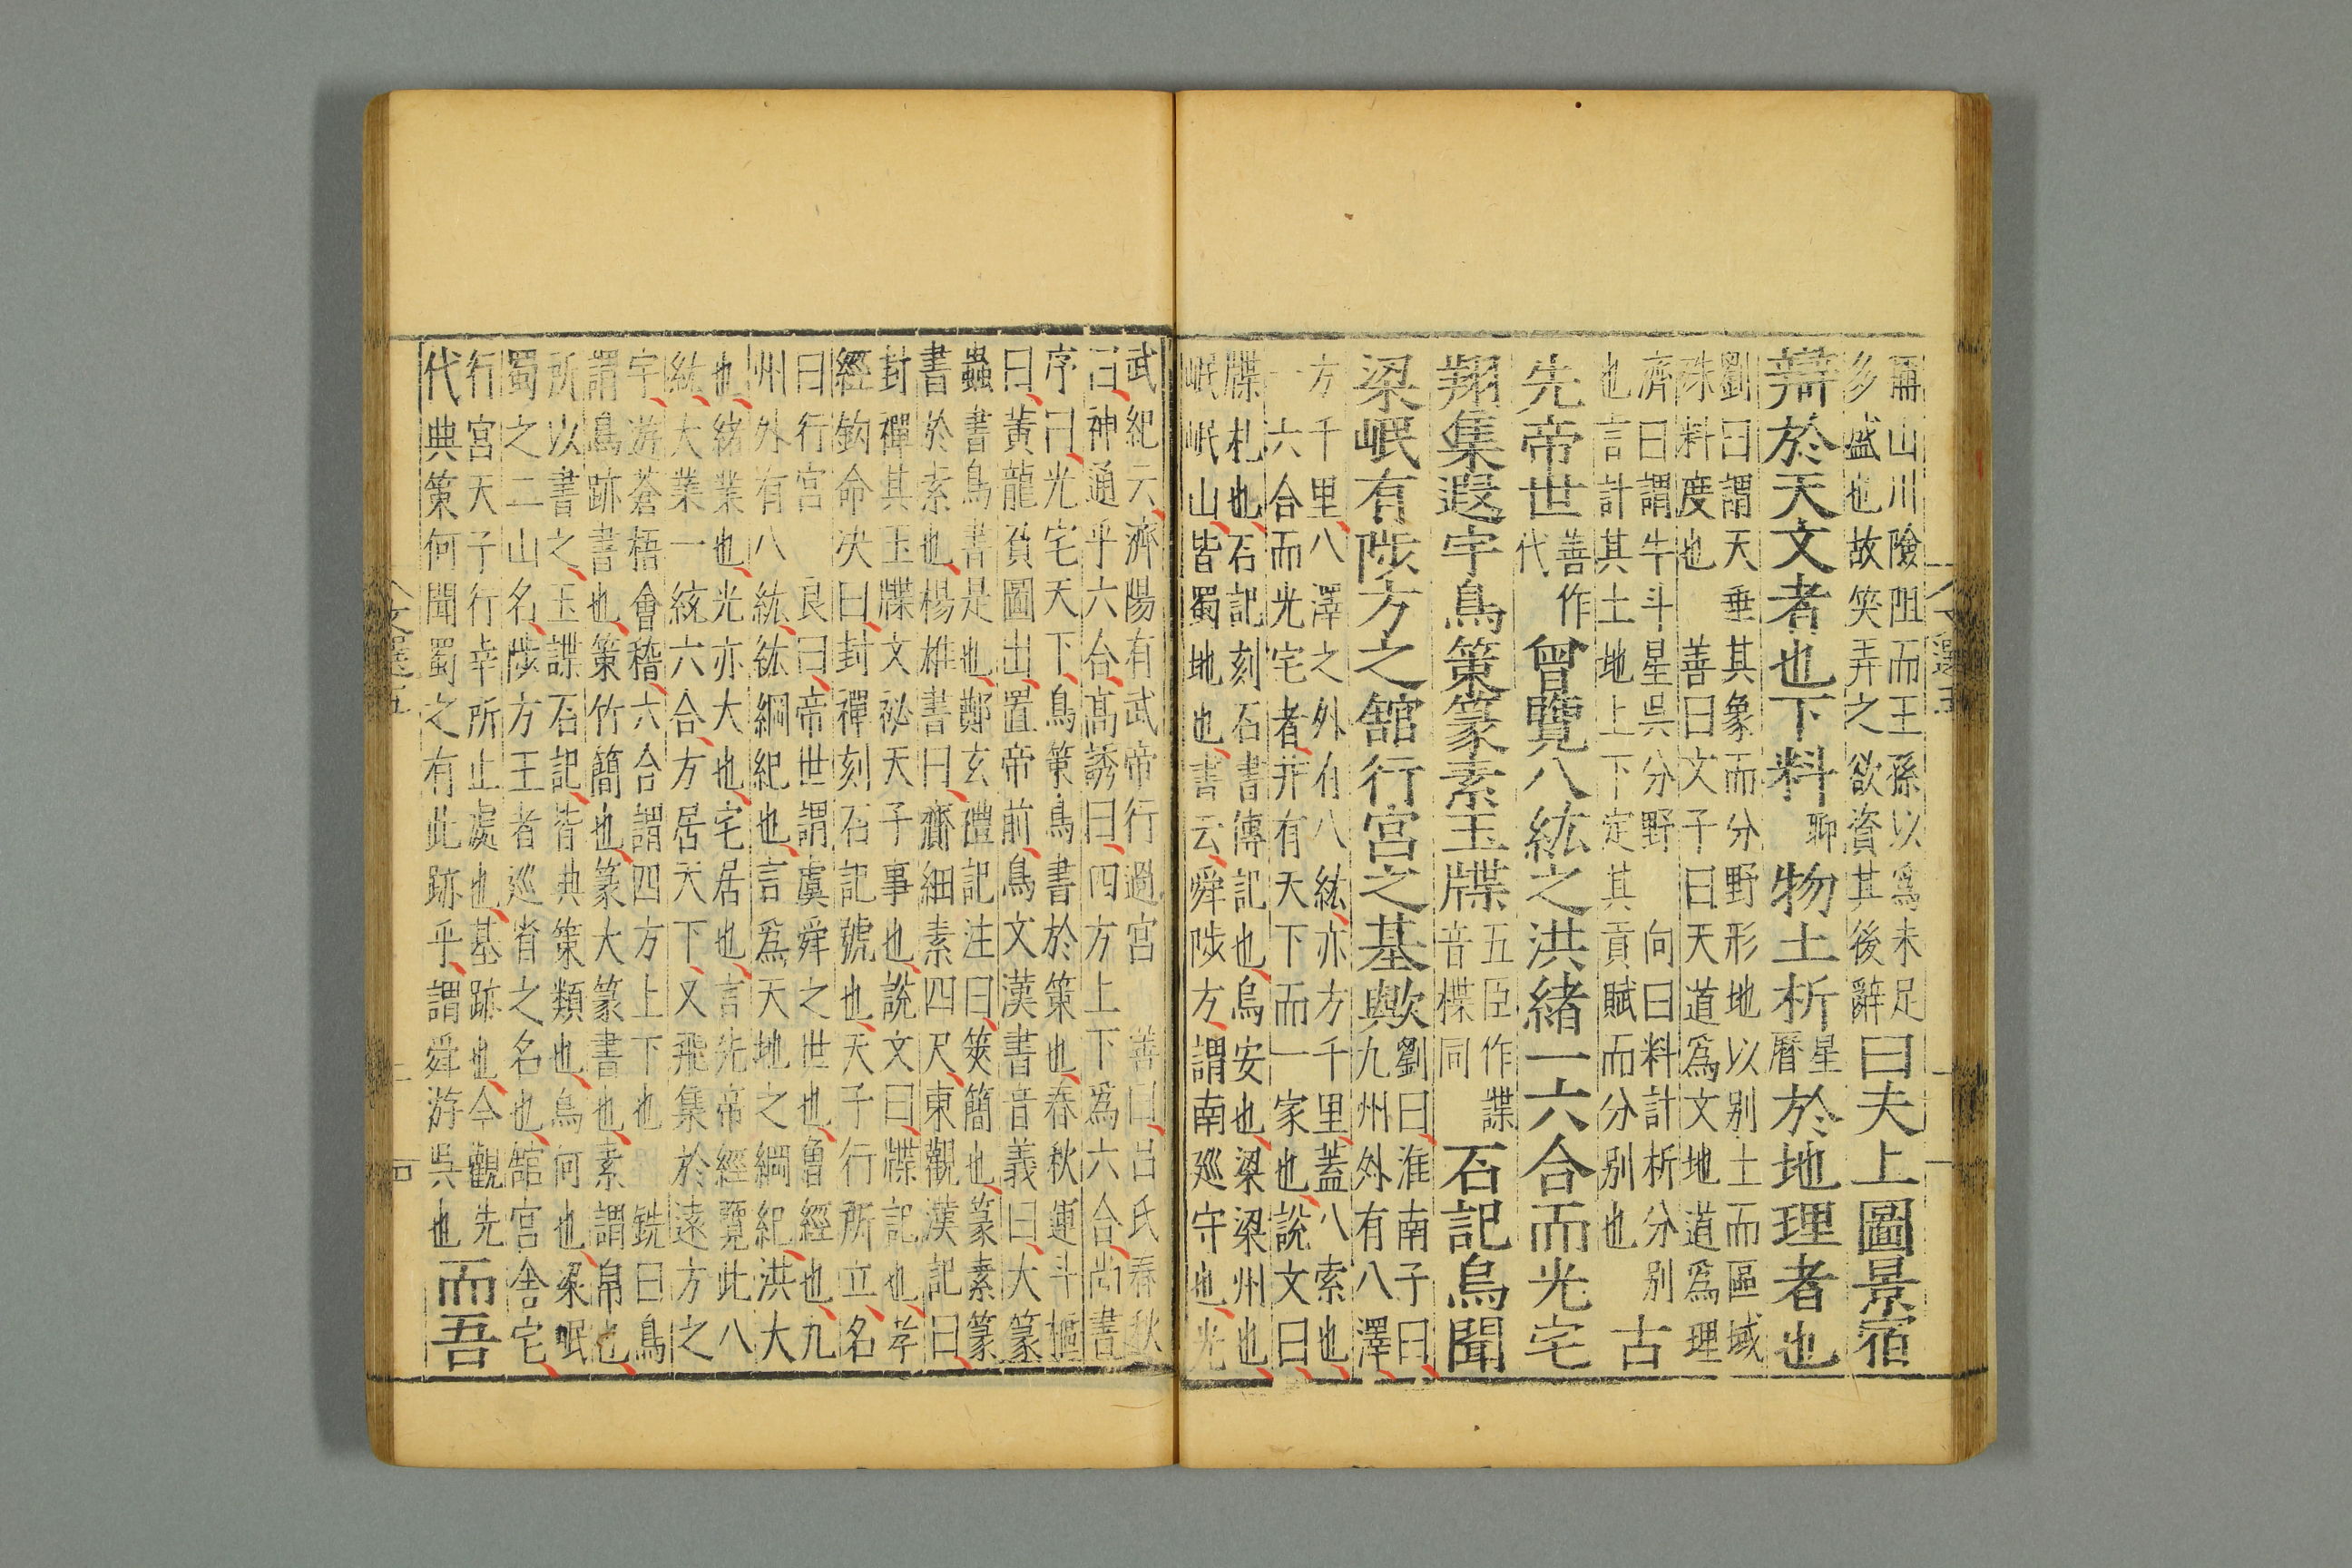 爾山川險阻而王孫以爲未足
多盛也故笑弄之欲資其後辭
曰夫上圖景宿
辯於天文者也下料
聊
物土析
星
曆
於地理者也
劉曰謂天垂其象而分野形地以别土而區域
殊料度也 善曰文子曰天道爲文地道爲理
濟曰謂牛斗星吳分野 向曰料計析分别
也言計其土地上下定其貢賦而分别也
古
先帝世
善作
代
曾覽八紘之洪緒一六合而光宅
翔集遐宇鳥策篆素玉牒
五臣作諜
音楪同
石記烏聞
梁岷有陟方之舘行宮之基歟
劉曰淮南子曰
九州外有八澤
方千里八澤之外有八紘亦方千里蓋八索也
一六合而光宅者并有天下而一家也說文曰
牒札也石記刻石書傳記也烏安也梁梁州也
岷岷山皆蜀地也書云舜陟方謂南廵守也光
武紀云濟陽有武帝行過宮 善曰吕氏春秋
曰神通乎六合高誘曰四方上下爲六合尚書
序曰光宅天下鳥策鳥書於策也春秋運斗樞
曰黃龍負圖出置帝前鳥文漢書音義曰大篆
蟲書鳥書是也鄭玄禮記注曰筴簡也篆素篆
書於素也楊雄書曰齎細素四尺東觀漢記曰
封禪其玉牒文祕天子事也說文曰牒記也孝
經鉤命决曰封禪刻石記號也天子行所立名
曰行宮 良曰帝世謂虞舜之世也魯經也九
州外有八紘紘綱紀也言爲天地之綱紀洪大
也緒業也光亦大也宅居也言先帝經覽此八
紘大業一統六合方居天下又飛集於遠方之
宇游蒼梧會稽六合謂四方上下也 銑曰鳥
謂鳥跡書也策竹簡也篆大篆書也素謂帛也
所以書之玉諜石記皆典策類也烏何也梁岷
蜀之二山名陟方王者廵省之名也舘宮舍宅
行宮天子行幸所止處也基跡也今觀先
代典策何聞蜀之有此跡乎謂舜游吳也
而吾